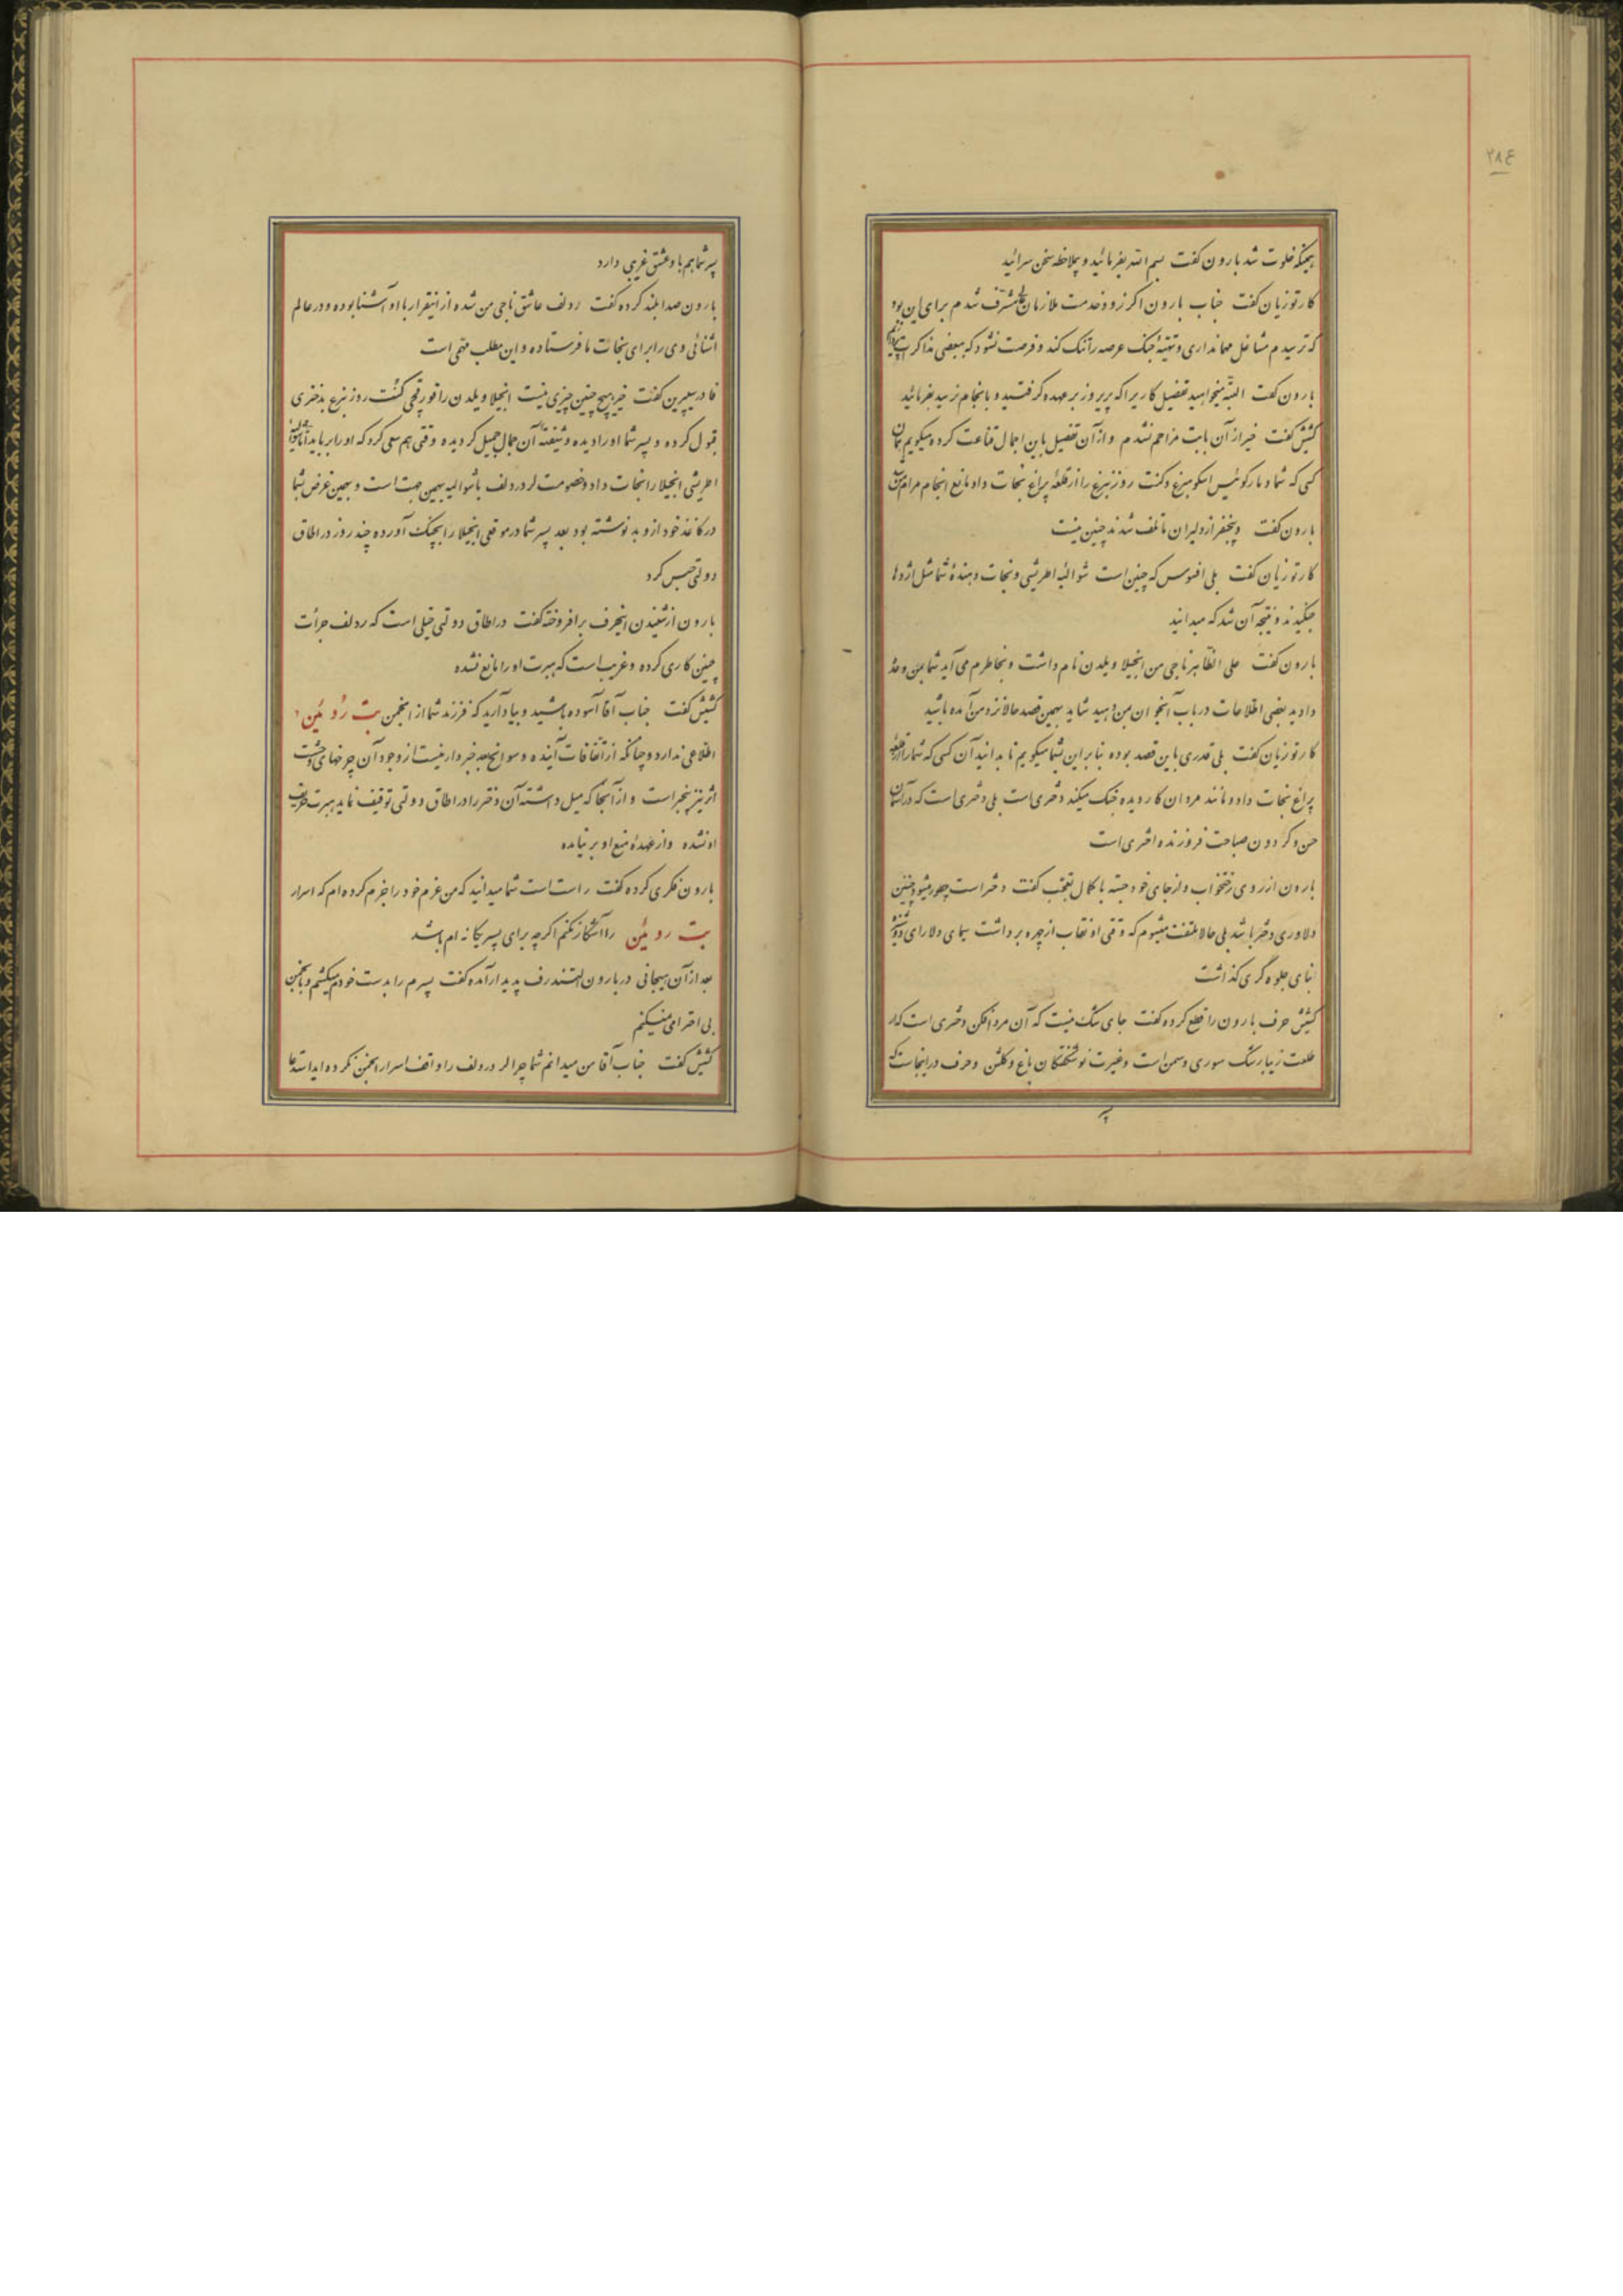 ۲۸۴
همینکه خلوت شد بارون گفت بسم الله بفرمائید و بملاحظه سخن سرائید
کارتوزیان گفت جناب بارون اگر زود خدمت ملازمان مشرف شدم برای این بود
که ترسیدم مشاغل مهمانداری و تهیهٔ جنگ عرصه را تنگ کند و فرصت نشود که ببعضی مذاکرات
بارون گفت البته میخواهید تفصیل کاریرا که پریروز بر عهده گرفتید و بانجام نرسید بفرمائید
کشیش گفت خیر از آن بابت مزاحم نشدم و از آن تفصیل باین اجمال قناعت کرده میگویم همان
کسی که شما و مارکوئیس اسکومبرغ و کنت روزنبرغ را از قلعهٔ پراغ نجات داد مانع انجام مرام
بارون گفت و پنجنفر از دلیران ما تلف شدند چنین نیست
کارتوزیان گفت بلی افسوس که چنین است شوالیهٔ اطریشی و نجات دهندهٔ شما مثل اژدها
جنگیدند و نتیجه آن شد که میدانید
بارون گفت علی الظاهر ناجی من انجیلا ویلدن نام داشت و بخاطرم می‌آید شما بمن وعده
دادید بعضی اطلاعات در باب آنجوان بمن دهید شاید بهمین قصد حالا نزد من آمده باشید
کارتوزیان گفت بلی قدری باین قصد بوده بنابراین بشما میگویم تا بدانید آن کسی که شما را از قلعهٔ
پراغ نجات داد و مانند مردان کاردیده جنگ میکند دختری است بلی دختری است که در آسمان
حسن و گردون صباحت فروزنده اختری است
بارون از روی رختخواب و از جای خود جسته با کمال تعجب گفت دختر است چطور میشود چنین
دلاوری دختر باشد بلی حالا ملتفت میشوم که وقتی او نقاب از چهره برداشت سیمای دلارای
بنای جلوه گری گذاشت
کشیش حرف بارون را قطع کرده گفت جای شک نیست که آن مرد افکن دختری است که از
طلعت زیبا رشک سوری و سمن است و غیرت نوشکفتگان باغ و گلشن و حرف در اینجاست که
پسر شما هم با او عشق غریبی دارد
بارون صدا بلند کرده گفت رودلف عاشق ناجی من شده از اینقرار با او آشنا بوده و در عالم
آشنائی وی را برای نجات ما فرستاده و این مطلب مهمی است
فادر سیپرین گفت خیر هیچ چنین چیزی نیست انجیلا ویلدن را قورقچی کنت روزنبرغ بدختری
قبول کرده و پسر شما او را دیده و شیفتهٔ آن جمال جمیل گردیده وقتی هم سعی کرد که او را برباید اما شوالیهٔ
اطریشی انجیلا را نجات داد و خصومت لرد رودلف با شوالیه بهمین جهت است و بهمین غرض بشما
در کاغذ خود از او بد نوشته بود بعد پسر شما در موقعی انجیلا را بچنگ آورده چند روز در اطاق
دولتی حبس کرد
بارون از شنیدن اینحرف برافروخته گفت در اطاق دولتی خیلی است که رودلف جرأت
چنین کاری کرده و غریب است که هبرت او را مانع نشده
کشیش گفت جناب آقا آسوده باشید و بیاد آرید که فرزند شما از انجمن بت روئین
اطلاعی ندارد و چنانکه از اتفاقات آینده و سوانح بعد خبردار نیست از وجود آن چرخهای دهشت
اثر نیز بیخبر است و از آنجا که میل داشته آن دختر را در اطاق دولتی توقیف نماید هبرت حریف
او نشده و از عهدهٔ منع او بر نیامده
بارون فکری کرده گفت راست است شما میدانید که من عزم خود را جزم کرده‌ام که اسرار
بت روئین را آشکار نکنم اگرچه برای پسر یگانه‌ام باشد
بعد از آن هیجانی در بارون التندرف پدیدار آمده گفت پسرم را بدست خود میکشم و بانجمن
بی احترامی نمیکنم
کشیش گفت جناب آقا من میدانم شما چرا لرد رودلف را واقف اسرار انجمن نکرده‌اید استدعا